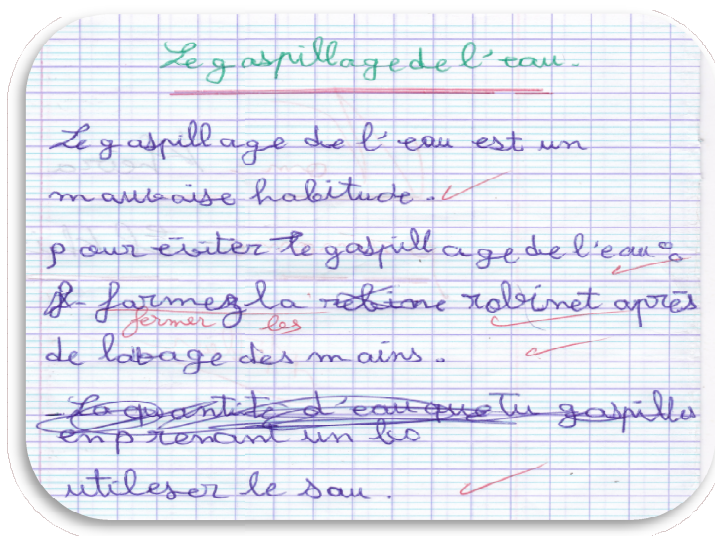 Le gaspillage de l'eau.
Le gaspillage de l'eau est un
mauvaise habitude.
pour éviter le gaspillage de l'eau :
- farmez la rebine robinet après
fermer les
de lavage des mains.
- La quantité d'eau que Tu gaspille
en prenant un bo
utileser le sau.